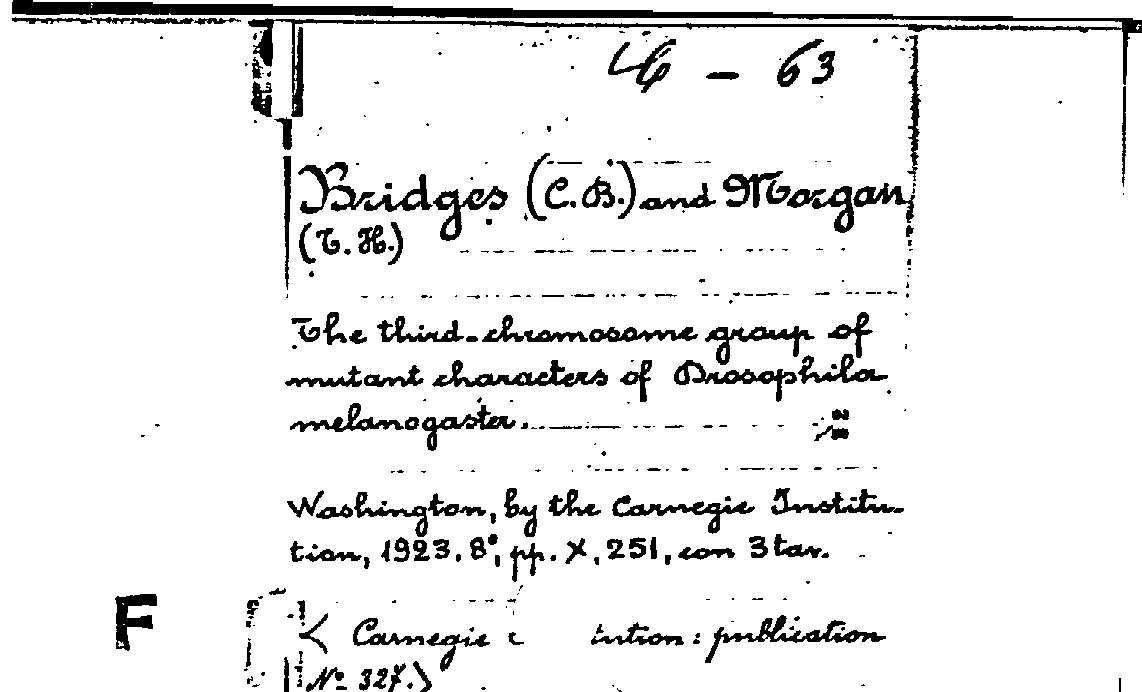 46 - 63
Bridges (C.B.) and Morgan
(T.H.)
The third-chromosome group of
mutant characters of Drosophila
melanogaster.
Washington, by the Carnegie Institu-
tion, 1923. 8°, pp. X, 251, con 3 tav.
F
< Carnegie tution : publication
Nº 327.>